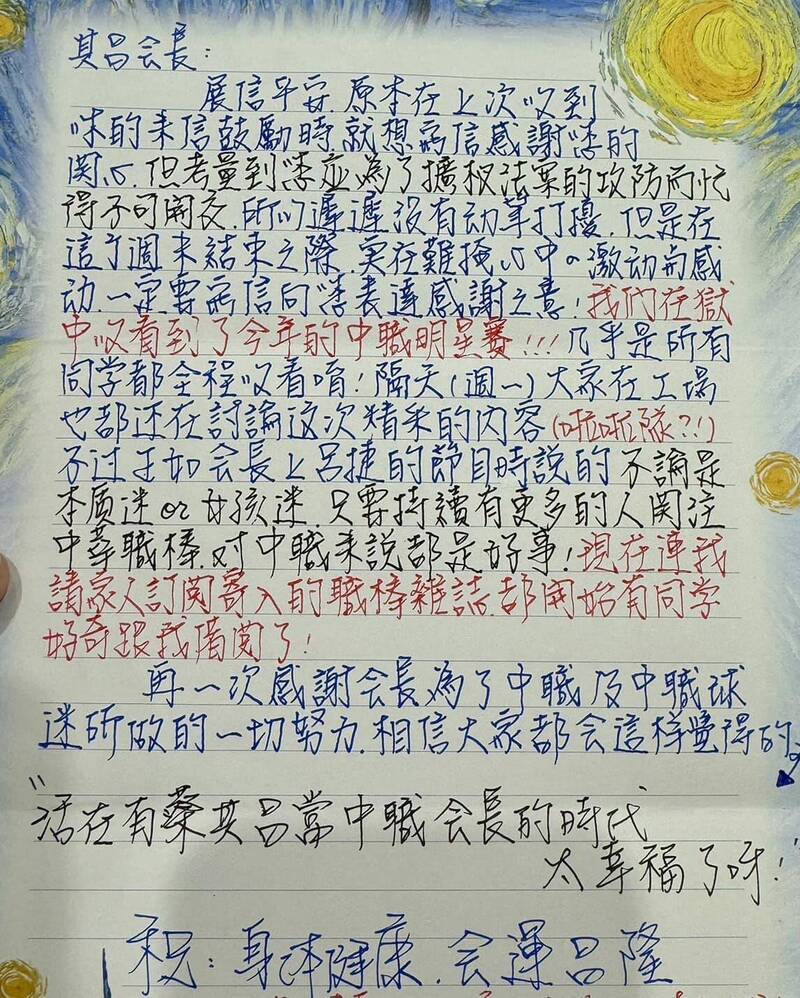 其昌会長：
展信平安.原本在上次收到
您的来信鼓勵時,就想寫信感謝您的
関心.但考量到您应為了擴权法案的攻防而忙
得不可開交.所以遲遲没有动筆打擾.但是在
這个週末結束之際.实在難掩心中の激动与感
动.一定要寫信向您表達感謝之意!我們在獄
中收看到了今年的中職明星賽!!!几乎是所有
同学都全程收看唷!隔天(週一)大家在工場
也都还在討論这次精采的内容(啦啦隊?!)
不过正如会長上呂捷的節目時説的 不論是
本质迷or女孩迷.只要持續有更多的人関注
中華職棒.对中職来説都是好事!現在連我
請家人訂閲寄入的職棒雜誌.都開始有同学
好奇跟我借閲了!
再一次感謝会長為了中職及中職球
迷所做的一切努力.相信大家都会這样覺得的。
"活在有蔡其昌當中職会長的時代
太幸福了呀!"
祝:身体健康.会運昌隆